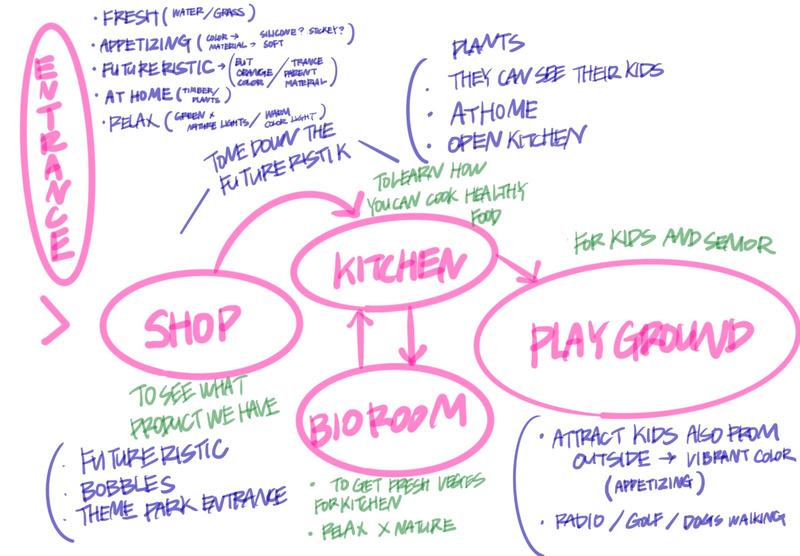 ENTRANCE
• FRESH (WATER/GRASS)
• APPETIZING (COLOR → SILICONE? STICKEY?
MATERIAL → SOFT)
• FUTURERISTIC → (BUT ORANGE COLOR / TRANCE PARENT MATERIAL)
• AT HOME (TIMBER/PLANTS)
• RELAX (GREEN x NATURE LIGHTS/ WARM COLOR LIGHT)
TONE DOWN THE
FUTURERISTIK
PLANTS
• THEY CAN SEE THEIR KIDS
• ATHOME
• OPEN KITCHEN
TO LEARN HOW
YOU CAN COOK HEALTHY
FOOD
FOR KIDS AND SENIOR
>
SHOP
KITCHEN
PLAY GROUND
BIO ROOM
TO SEE WHAT
PRODUCT WE HAVE
• FUTURERISTIC
• BOBBLES
• THEME PARK ENTRANCE
• TO GET FRESH VEGES
FOR KITCHEN
• RELAX X NATURE
• ATTRACT KIDS ALSO FROM
OUTSIDE → VIBRANT COLOR
(APPETIZING)
• RADIO / GOLF / DOGS WALKING